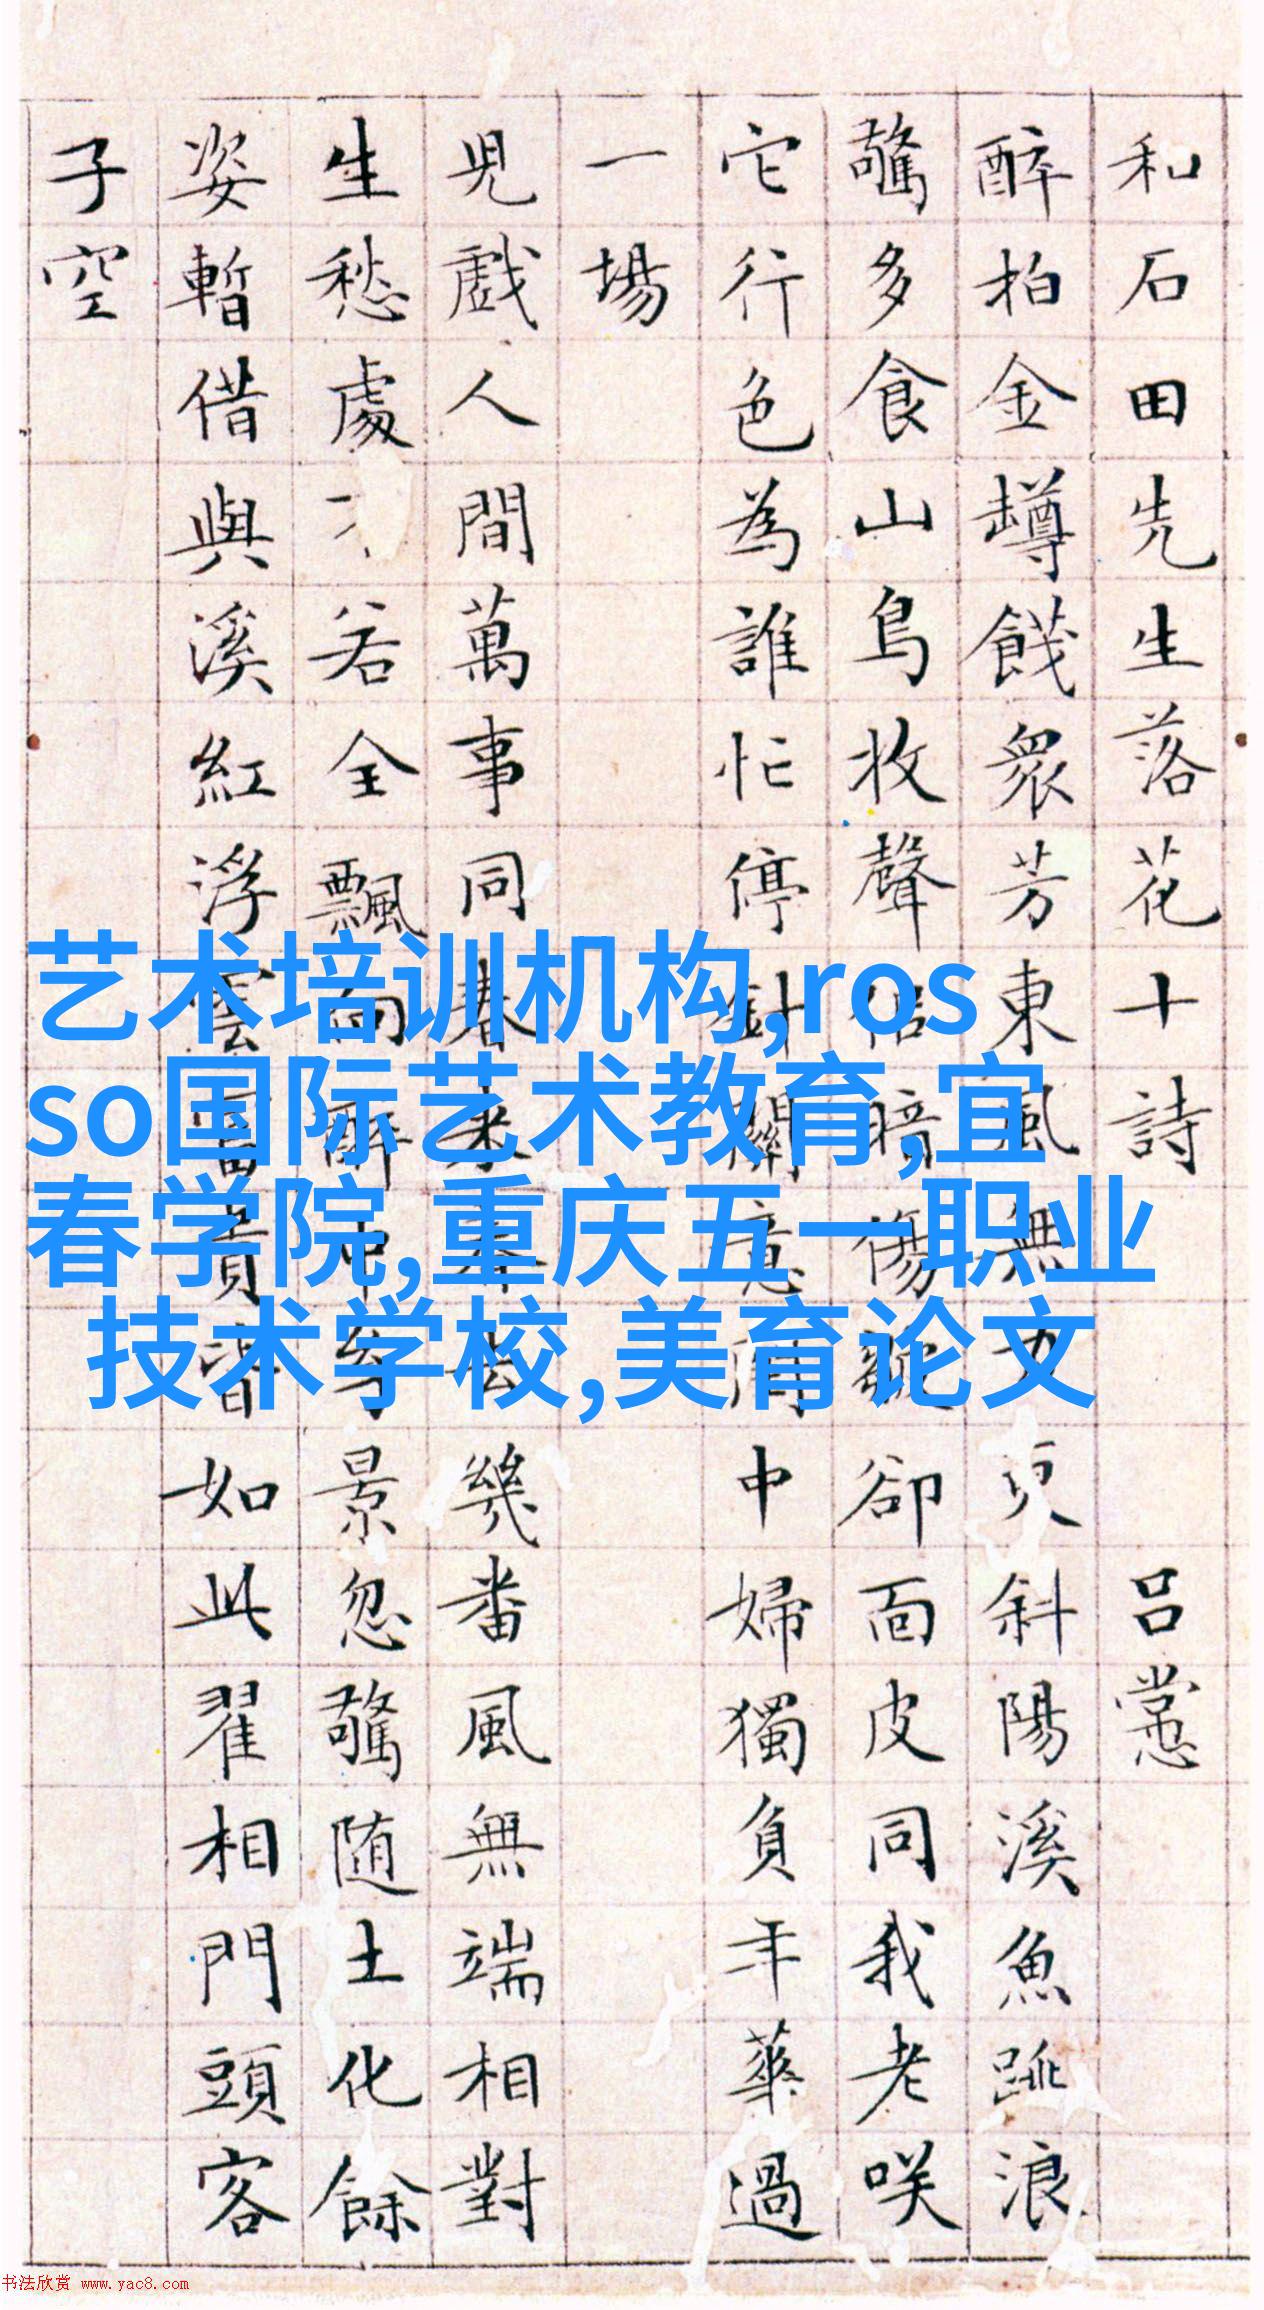 和石田先生落花十詩 吕
醉拍金罇餞衆芳東風無力斜陽溪魚跳浪
驚多食山鳥收聲倍暗傷卻面皮同我老咲
它行色為誰忙停針意閨中婦獨負年華過
一場
児戲人間萬事同春来春去幾番風無端相對
生愁處不若全飄向醉中景忽驚随土化餘
姿暫借與溪紅浮雲富貴皆如此翟相門頭客
子空
艺术培训机构,ros
so国际艺术教育,宜
春学院,重庆五一职业
技术学校,美育论文
书法欣赏 www.yac8.com